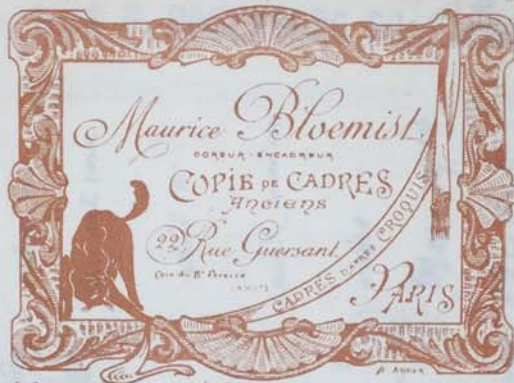 Maurice Bloemist
DOREUR-ENCADREUR
COPIE DE CADRES
Anciens
22 Rue Guersant
Coin du Bd Pereire
(XVIIe)
CADRES D'APRÈS CROQUIS
PARIS